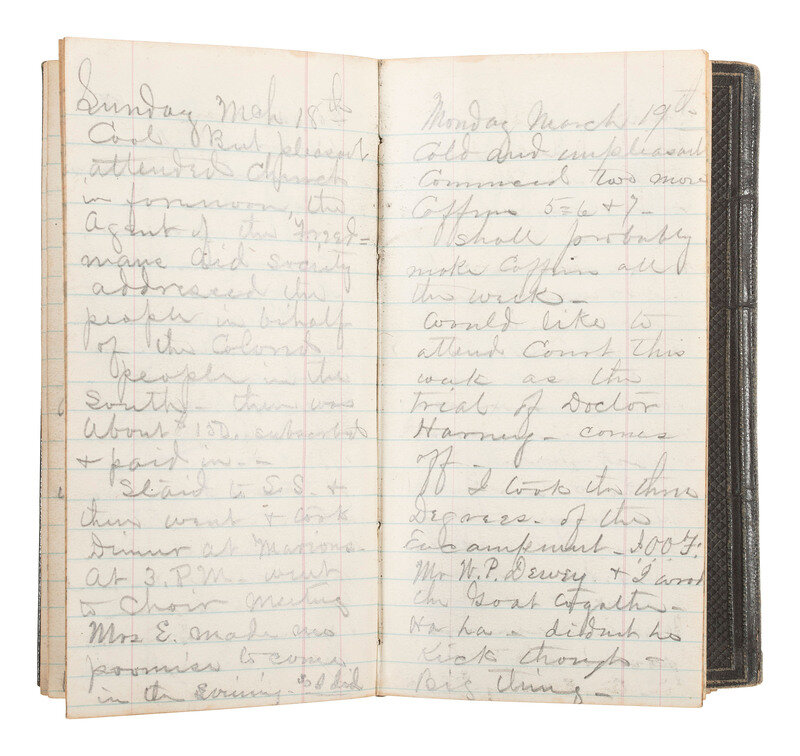 Sunday Mch 18th
Cool But pleasant
attended Church
in forenoon, the
Agent of the Freed=
mans Aid Society
addressed the
people in behalf
of the Colored
people in the
South - there was
About $150. subscribed
& paid in. -
Staid to S.S. &
then went & took
Dinner at Marions.
At 3. P.M. went
to Choir Meeting
Mrs E. made me
promise to come
in the Evening. & I did
Monday March 19th -
Cold and unpleasant
Commenced two more
Coffins 5=6 & 7 -
I shall probably
make Coffins all
the week -
Would like to
attend Court this
week as the
trial of Doctor
Harney - comes
off -
I took the three
Degrees - of the
Encampment - I.O.O.F.
Mr W.P. Dewey & I rode
the Goat togather -
Ha ha - didnt he
Kick though -
Big thing -